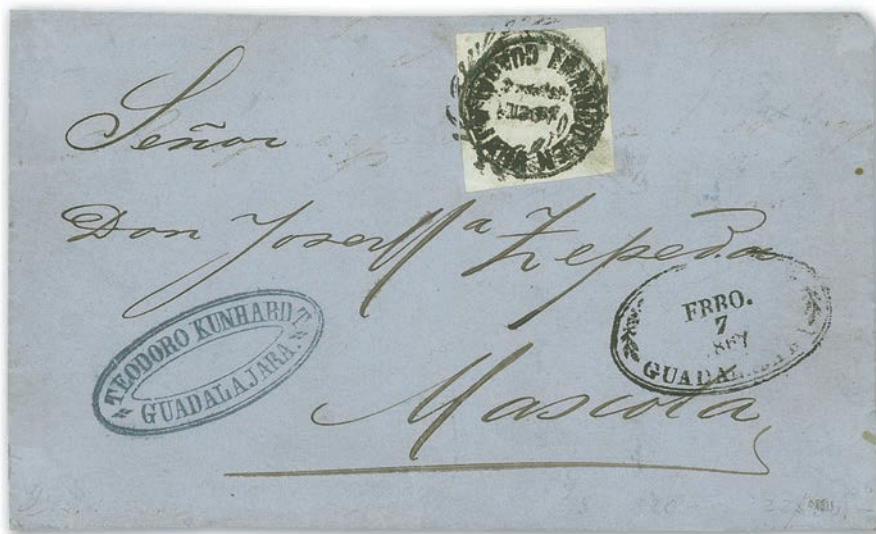 Señor
Don José M.ª Zepeda
Mascota
TEODORO KUNHARDT
GUADALAJARA
FRRO.
7
GUADALAJARA